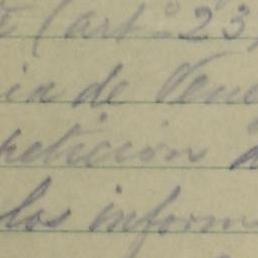 (art.º 23
ia de Ven
petición d
los inform